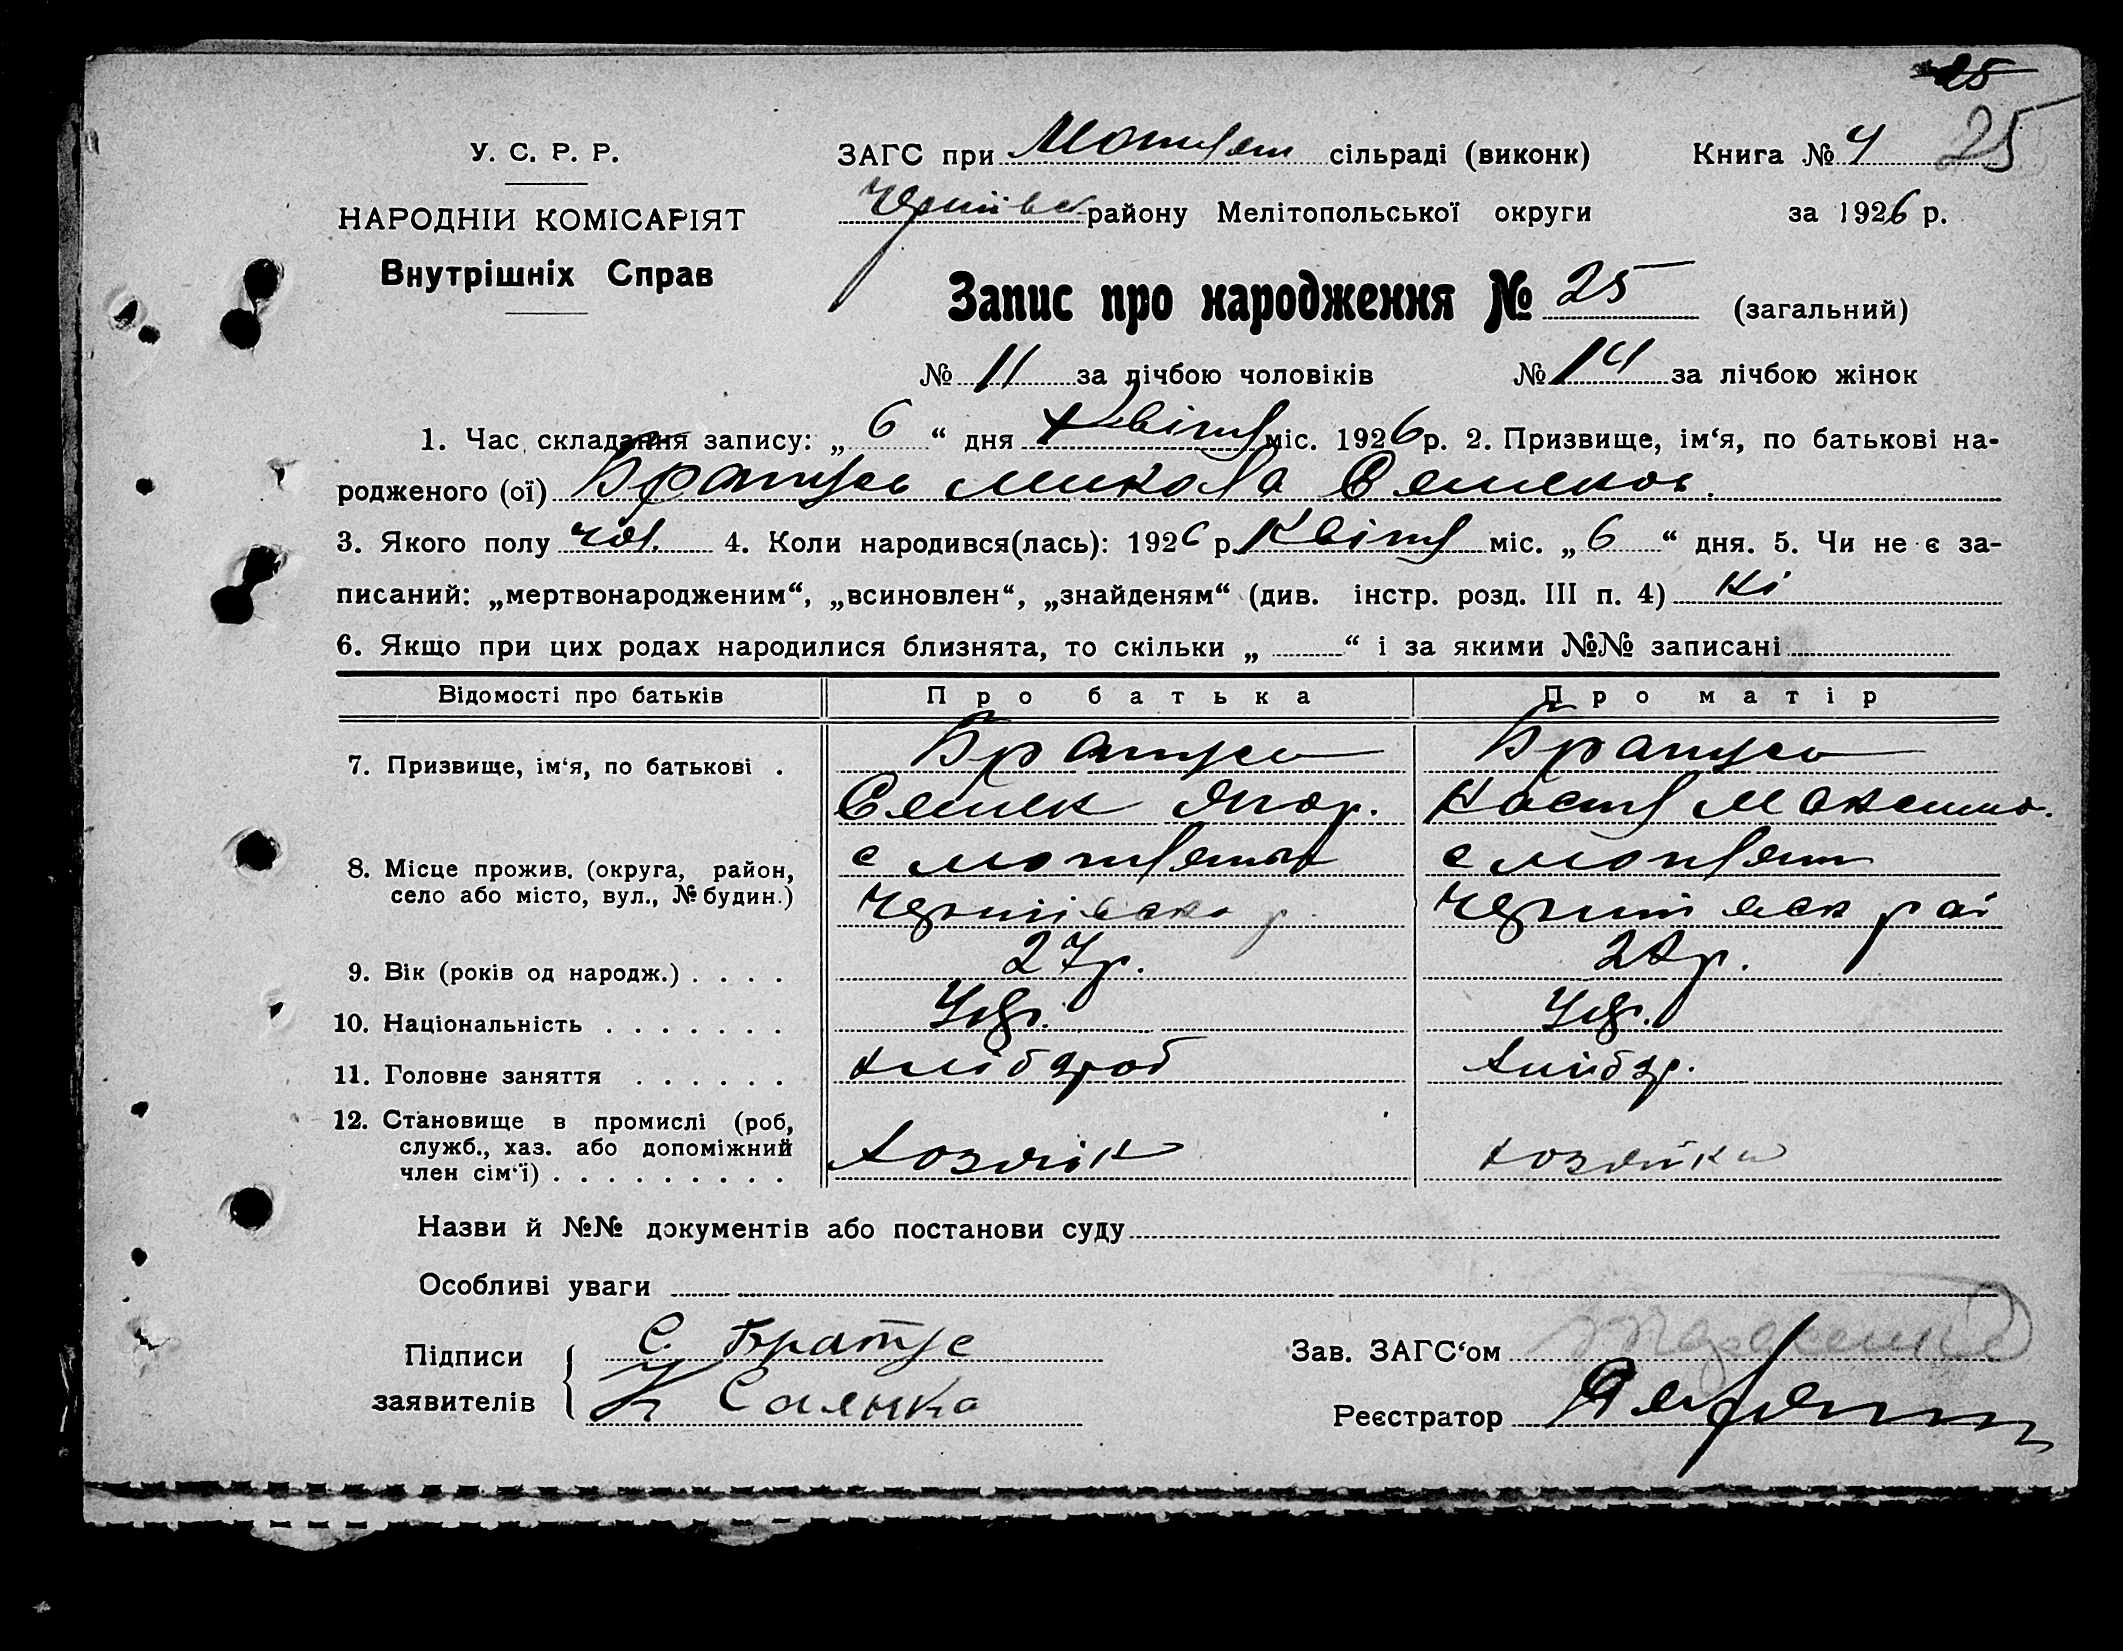 25
У. С. Р. Р. ЗАГС при сільраді (виконк) Книга № 4 25
НАРОДНІИ КОМІСАРІЯТ району Мелітопольської округи за 1926 р.
Внутрішніх Справ
Запис про народження № 25 (загальний)
№ 11 за лічбою чоловіків № 14 за лічбою жінок
1. Час складання запису: „ 6 “ дня Квітня міс. 1926 р. 2. Призвище, ім‘я, по батькові на-
родженого (ої) Братусь Микола Семенов.
3. Якого полу чол. 4. Коли народився(лась): 1926 р. Квітня міс. „ 6 “ дня. 5. Чи не є за-
писаний: „мертвонародженим“, „всиновлен“, „знайденям“ (див. інстр. розд. III п. 4) ні
6. Якщо при цих родах народилися близнята, то скільки „ “ і за якими №№ записані
Відомості про батьків Про батька Про матір
7. Призвище, ім‘я, по батькові . Братусь Братусь
Семен Настя Максимо.
8. Місце прожив. (округа, район, с с
село або місто, вул., № будин.)
9. Вік (років од народж.) . . . . 27 р.
10. Національність . . . . . . . Укр. Укр.
11. Головне заняття . . . . . . хлібороб
12. Становище в промислі (роб,
служб., хаз. або допоміжний хозяїн хозяйка
член сім‘ї) . . . . . . . . .
Назви й №№ документів або постанови суду
Особливі уваги
Підписи С. Братус Зав. ЗАГС‘ом
заявителів Реєстратор